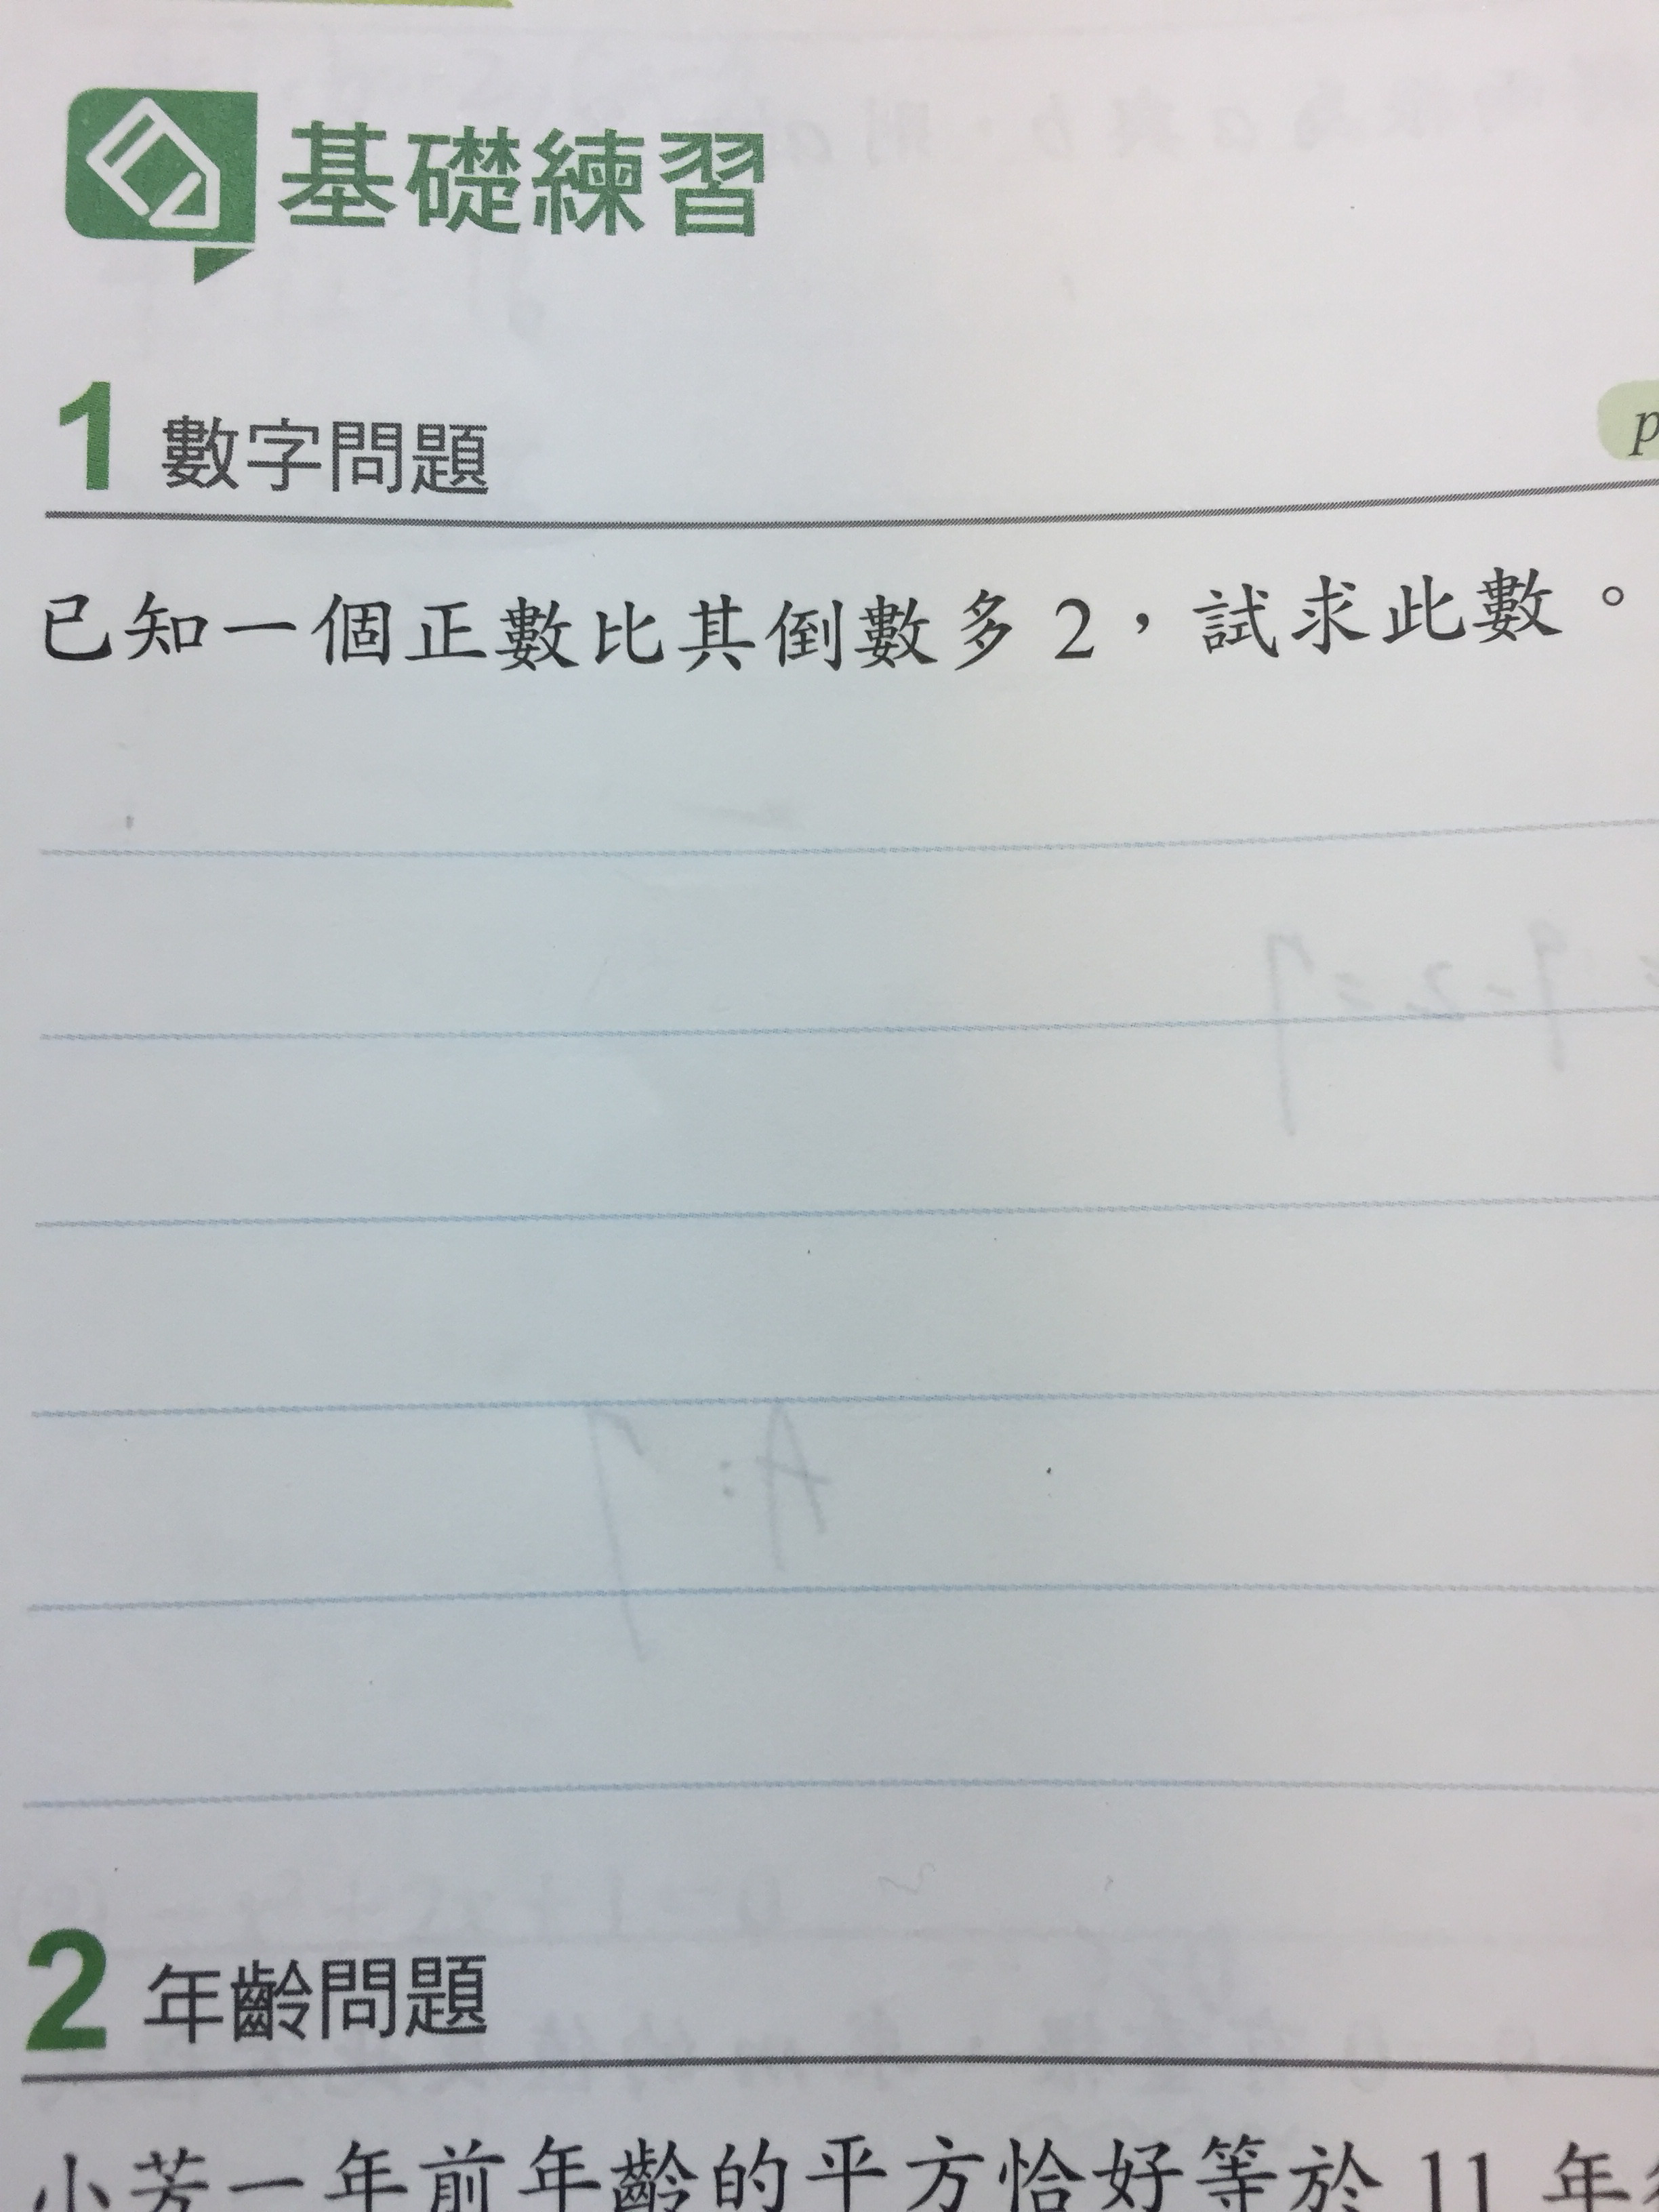 基礎練習
1 數字問題
p
已知一個正數比其倒數多 2，試求此數。
2 年齡問題
小芳一年前年齡的平方恰好等於 11 年